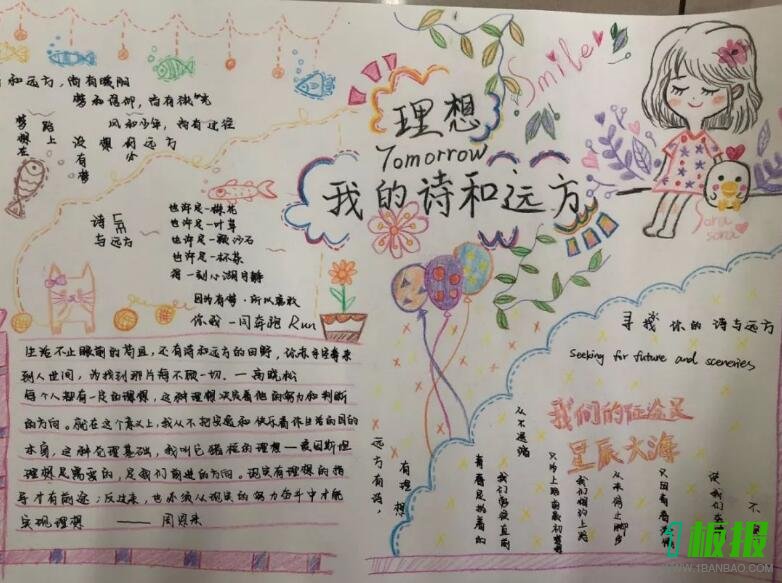 和远方，尚有暖阳
梦和信仰，尚有微光
风和少年，尚有过往
没想何远方
Smile
理想
Tomorrow
我的诗和远方
Sora
sora
诗
与远方
也许是一棵花
也许是一叶草
也许是一颗沙石
也许是一杯茶
因为有梦，所以勇敢
你我一同奔跑 Run
生活不止眼前的苟且，还有诗和远方的田野，你赤手空拳来
到人世间，为找到那片海不顾一切。—高晓松
每个人都有一定的理想，这种理想决定着他的努力和判断
的方向。就在这个意义上，我从不把安逸和快乐看作生活的目的
本身，这种伦理基础，我叫它猪栏的理想—爱因斯坦
理想是需要的，是我们前进的方向。现实有理想的指
导才有前途；反过来，也必须从现实的努力奋斗中才能
实现理想 —— 周恩来
寻找你的诗与远方
Seeking for future and sceneries
我们的征途是
星辰大海
远方有诗，
有理想
青春是执着的
从不退缩
我们勇敢直前
只为上路
我们相约上路
从未停止脚步
板报
WWW.1BANBAO.COM